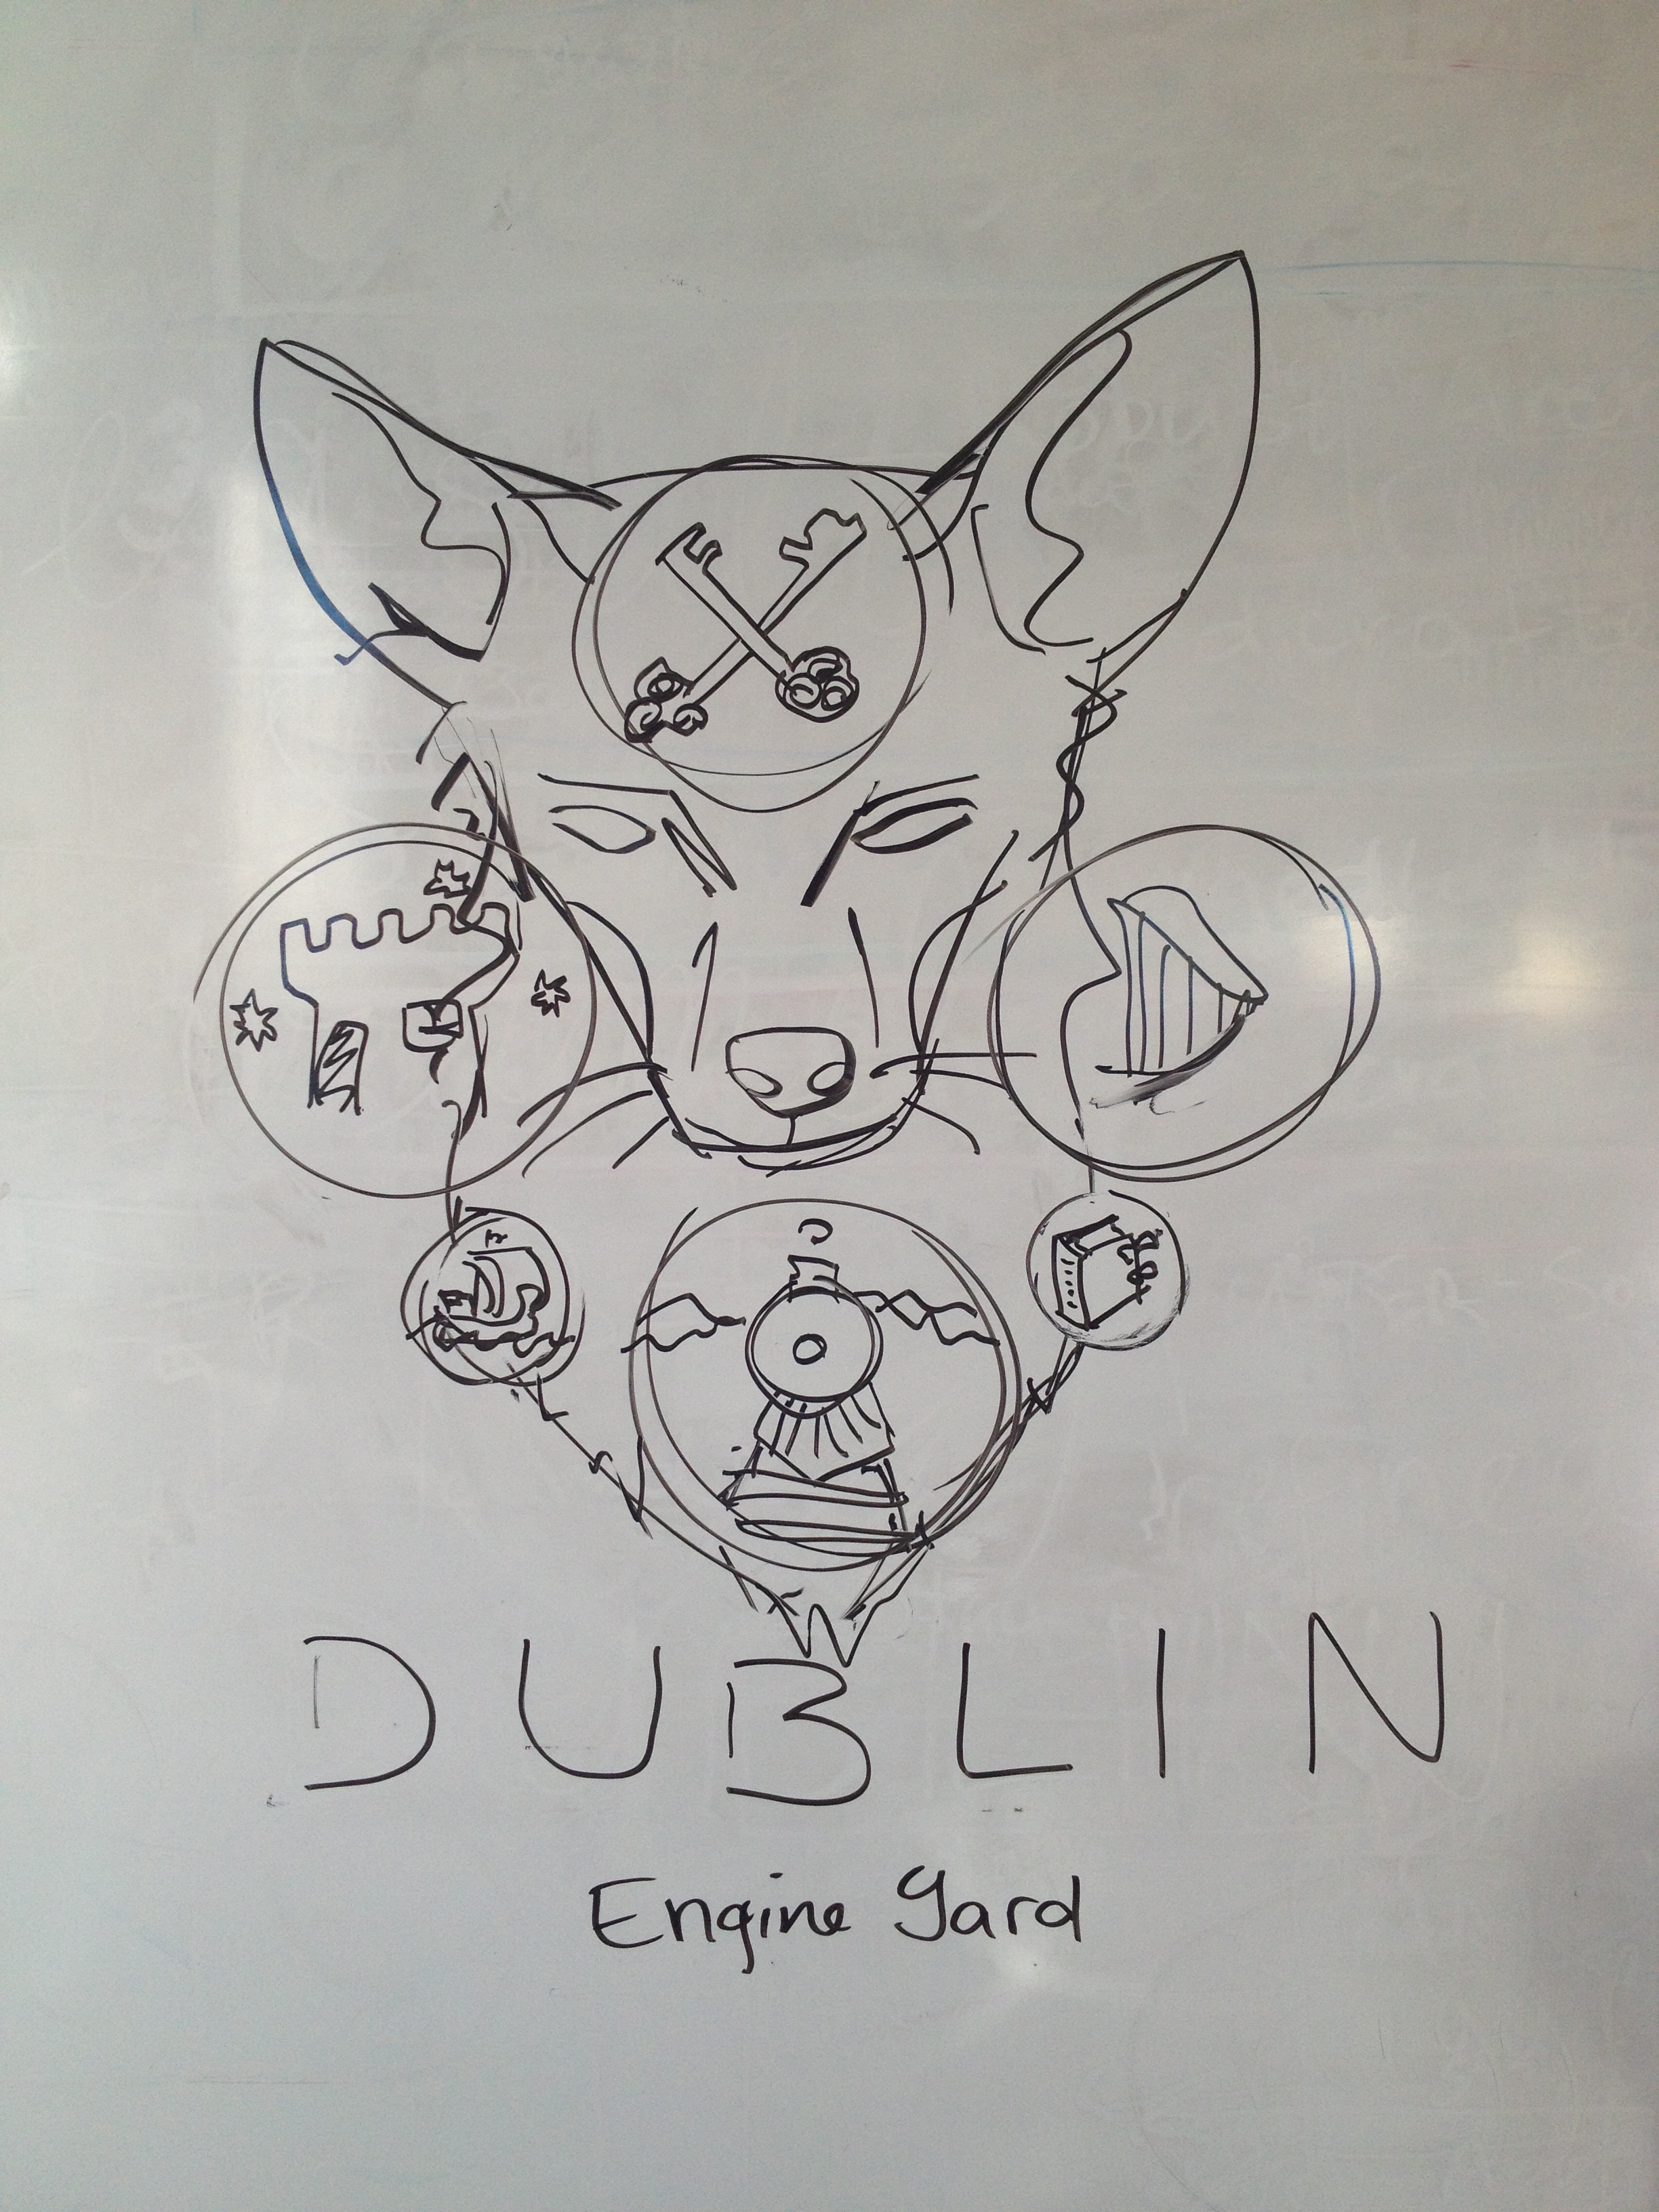 DUBLIN
Engine Yard